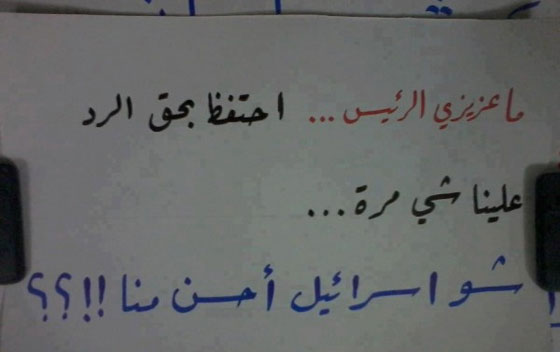 ما عزيزي الرئيس... احتفظ بحق الرد
علينا شي مرة...
شو اسرائيل أحسن منا!!؟؟